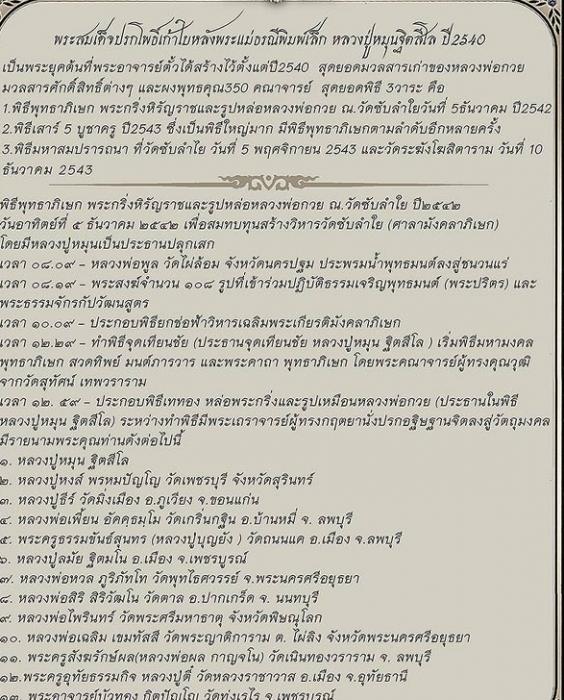 พระสมเด็จปรกโพธิ์เก้าใบหลังพระแม่ธรณีพิมพ์เล็ก หลวงปู่หมุนฐิตสีโล ปี2540
เป็นพระยุคต้นที่พระอาจารย์ตั้วได้สร้างไว้ตั้งแต่ปี2540 สุดยอดมวลสารเก่าของหลวงพ่อกวย
มวลสารศักดิ์สิทธิ์ต่างๆ และผงพุทธคุณ350 คณาจารย์ สุดยอดพิธี 3วาระ คือ
1.พิธีพุทธาภิเษก พระกริ่งหิรัญราชและรูปหล่อหลวงพ่อกวย ณ.วัดซับลำใยวันที่ 5ธันวาคม ปี2542
2.พิธีเสาร์ 5 บูชาครู ปี2543 ซึ่งเป็นพิธีใหญ่มาก มีพิธีพุทธาภิเษกตามลำดับอีกหลายครั้ง
3.พิธีมหาสมปรารถนา ที่วัดซับลำใย วันที่ 5 พฤศจิกายน 2543 และวัดระฆังโฆสิตาราม วันที่ 10
ธันวาคม 2543
พิธีพุทธาภิเษก พระกริ่งหิรัญราชและรูปหล่อหลวงพ่อกวย ณ.วัดซับลำใย ปี๒๕๔๒
วันอาทิตย์ที่ ๕ ธันวาคม ๒๕๔๒ เพื่อสมทบทุนสร้างวิหารวัดซับลำใย (ศาลามังคลาภิเษก)
โดยมีหลวงปู่หมุนเป็นประธานปลุกเสก
เวลา ๐๘.๐๙ – หลวงพ่อพูล วัดไผ่ล้อม จังหวัดนครปฐม ประพรมน้ำพุทธมนต์ลงสู่ชนวนแร่
เวลา ๐๘.๑๙ – พระสงฆ์จำนวน ๑๐๘ รูปที่เข้าร่วมปฏิบัติธรรมเจริญพุทธมนต์ (พระปริตร) และ
พระธรรมจักรกัปวัฒนสูตร
เวลา ๑๐.๐๙ – ประกอบพิธียกช่อฟ้าวิหารเฉลิมพระเกียรติมังคลาภิเษก
เวลา ๑๒.๒๙ – ทำพิธีจุดเทียนชัย (ประธานจุดเทียนชัย หลวงปู่หมุน ฐิตสีโล ) เริ่มพิธีมหามงคล
พุทธาภิเษก สวดทิพย์ มนต์ภารวาร และพระคาถา พุทธาภิเษก โดยพระคณาจารย์ผู้ทรงคุณวุฒิ
จากวัดสุทัศน์ เทพวราราม
เวลา ๑๒. ๕๙ – ประกอบพิธีเททอง หล่อพระกริ่งและรูปเหมือนหลวงพ่อกวย (ประธานในพิธี
หลวงปู่หมุน ฐิตสีโล) ระหว่างทำพิธีมีพระเถราจารย์ผู้ทรงกฤตยานั่งปรกอฐิษฐานจิตลงสู่วัตถุมงคล
มีรายนามพระคุณท่านดังต่อไปนี้
๑. หลวงปู่หมุน ฐิตสีโล
๒. หลวงปู่หงส์ พรหมปัญโญ วัดเพชรบุรี จังหวัดสุรินทร์
๓. หลวงปู่ธีร์ วัดมิ่งเมือง อ.ภูเวียง จ.ขอนแก่น
๔. หลวงพ่อเพี้ยน อัคคธมฺโม วัดเกริ่นกฐิน อ.บ้านหมี่ จ. ลพบุรี
๕. พระครูธรรมขันธ์สุนทร (หลวงปู่บุญยัง ) วัดถนนแค อ.เมือง จ.ลพบุรี
๖. หลวงปู่ลมัย ฐิตมโน อ.เมือง จ.เพชรบูรณ์
๗. หลวงพ่อหวล ภูริภัทโท วัดพุทไธศวรรย์ จ.พระนครศรีอยุธยา
๘. หลวงพ่อสิริ สิริวัฒโน วัดตาล อ.ปากเกร็ด จ. นนทบุรี
๙. หลวงพ่อไพรินทร์ วัดพระศรีมหาธาตุ จังหวัดพิษณุโลก
๑๐. หลวงพ่อเฉลิม เขมทัสสี วัดพระญาติการาม ต. ไผ่ลิง จังหวัดพระนครศรีอยุธยา
๑๑. พระครูสังฆรักษ์ผล(หลวงพ่อผล กาญจโน) วัดเนินทองวราราม จ. ลพบุรี
๑๒.พระครูอุทัยธรรมกิจ หลวงปู่ตี๋ วัดหลวงราชาวาส อ.เมือง จ.อุทัยธานี
๑๓. พระอาจารย์บัวทอง กิตปัญโญ วัดทุ่งเรไร จ.เพชรบูรณ์